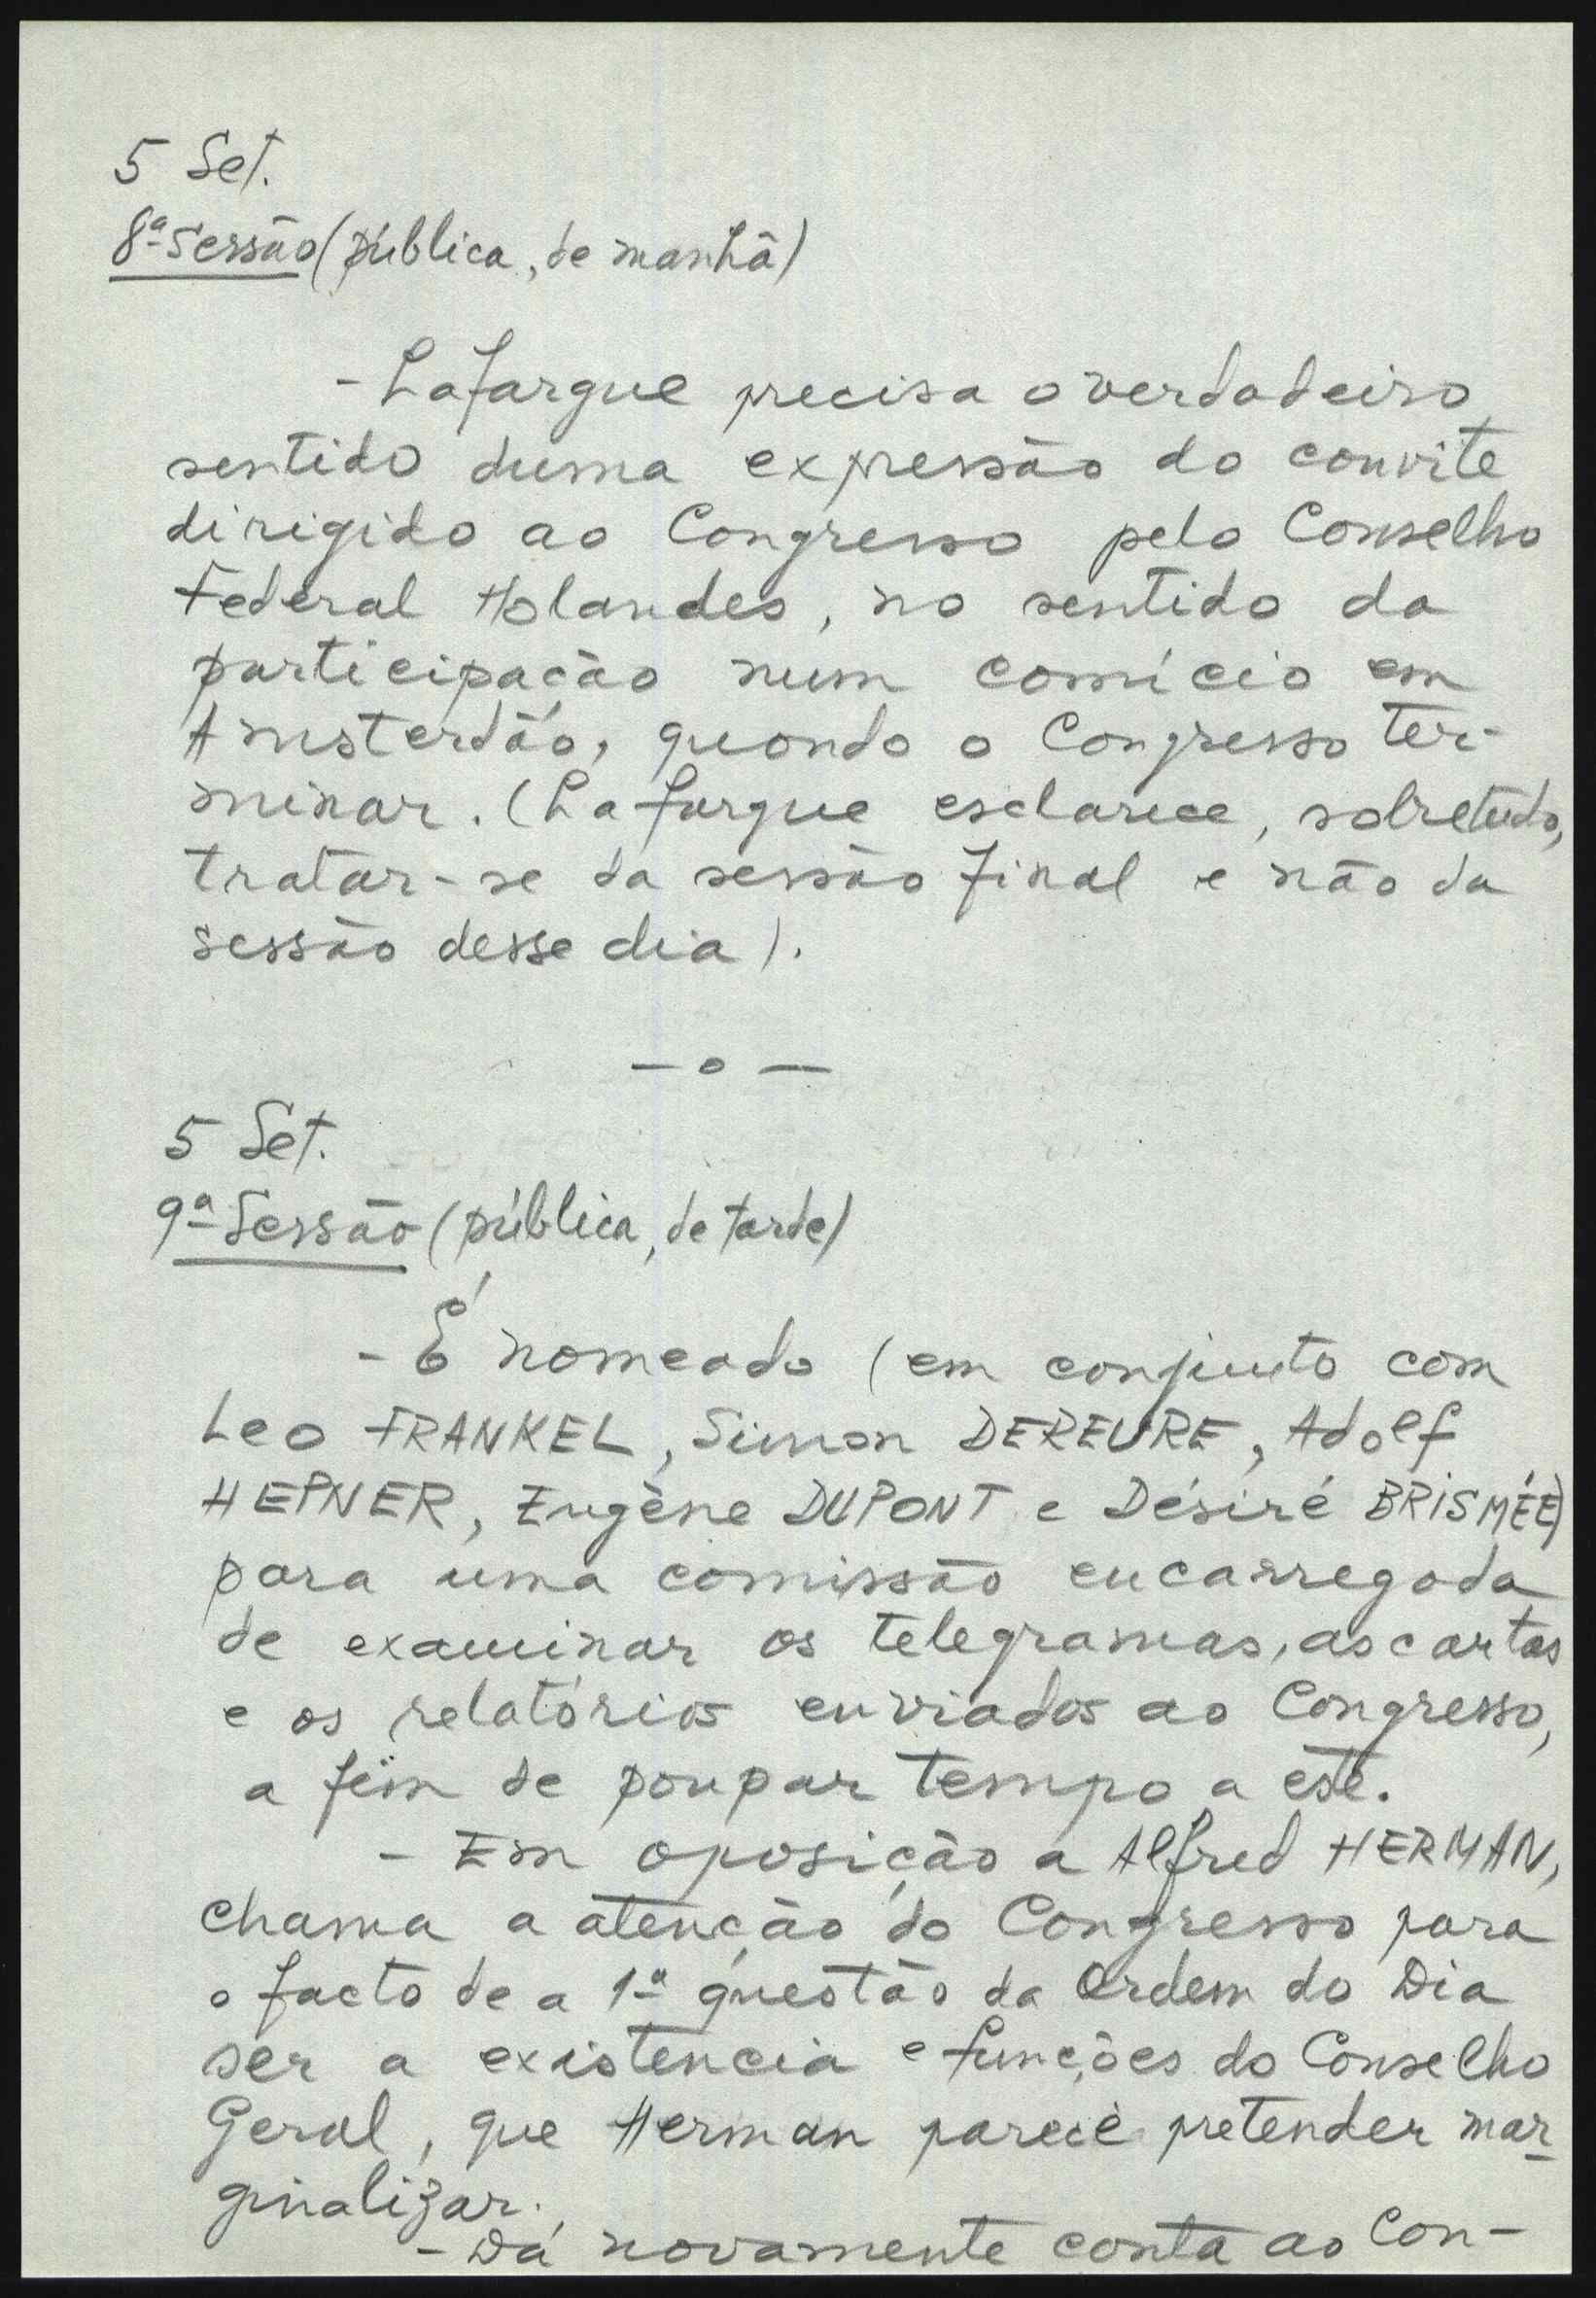 5 Set.
8ª Sessão (pública, de manhã)
- Lafargue precisa o verdadeiro
sentido duma expressão do convite
dirigido ao Congresso pelo Conselho
Federal Holandes, no sentido da
participação num comício em
Amsterdão, quando o Congresso ter-
minar. (Lafargue esclarece, sobretudo,
tratar-se da sessão final e não da
sessão desse dia).
— o —
5 Set.
9ª Sessão (pública, de tarde)
- É nomeado (em conjunto com
Leo FRANKEL, Simon DEREURE, Adolf
HEPNER, Eugène DUPONT e Désiré BRISMÉE)
para uma comissão encarregada
de examinar os telegramas, as cartas
e os relatórios enviados ao Congresso,
a fim de poupar tempo a este.
- Em oposição a Alfred HERMAN,
chama a atenção do Congresso para
o facto de a 1ª questão da Ordem do Dia
ser a existencia e funções do Conselho
Geral, que Herman parece pretender mar-
ginalizar.
- Dá novamente conta ao Con-